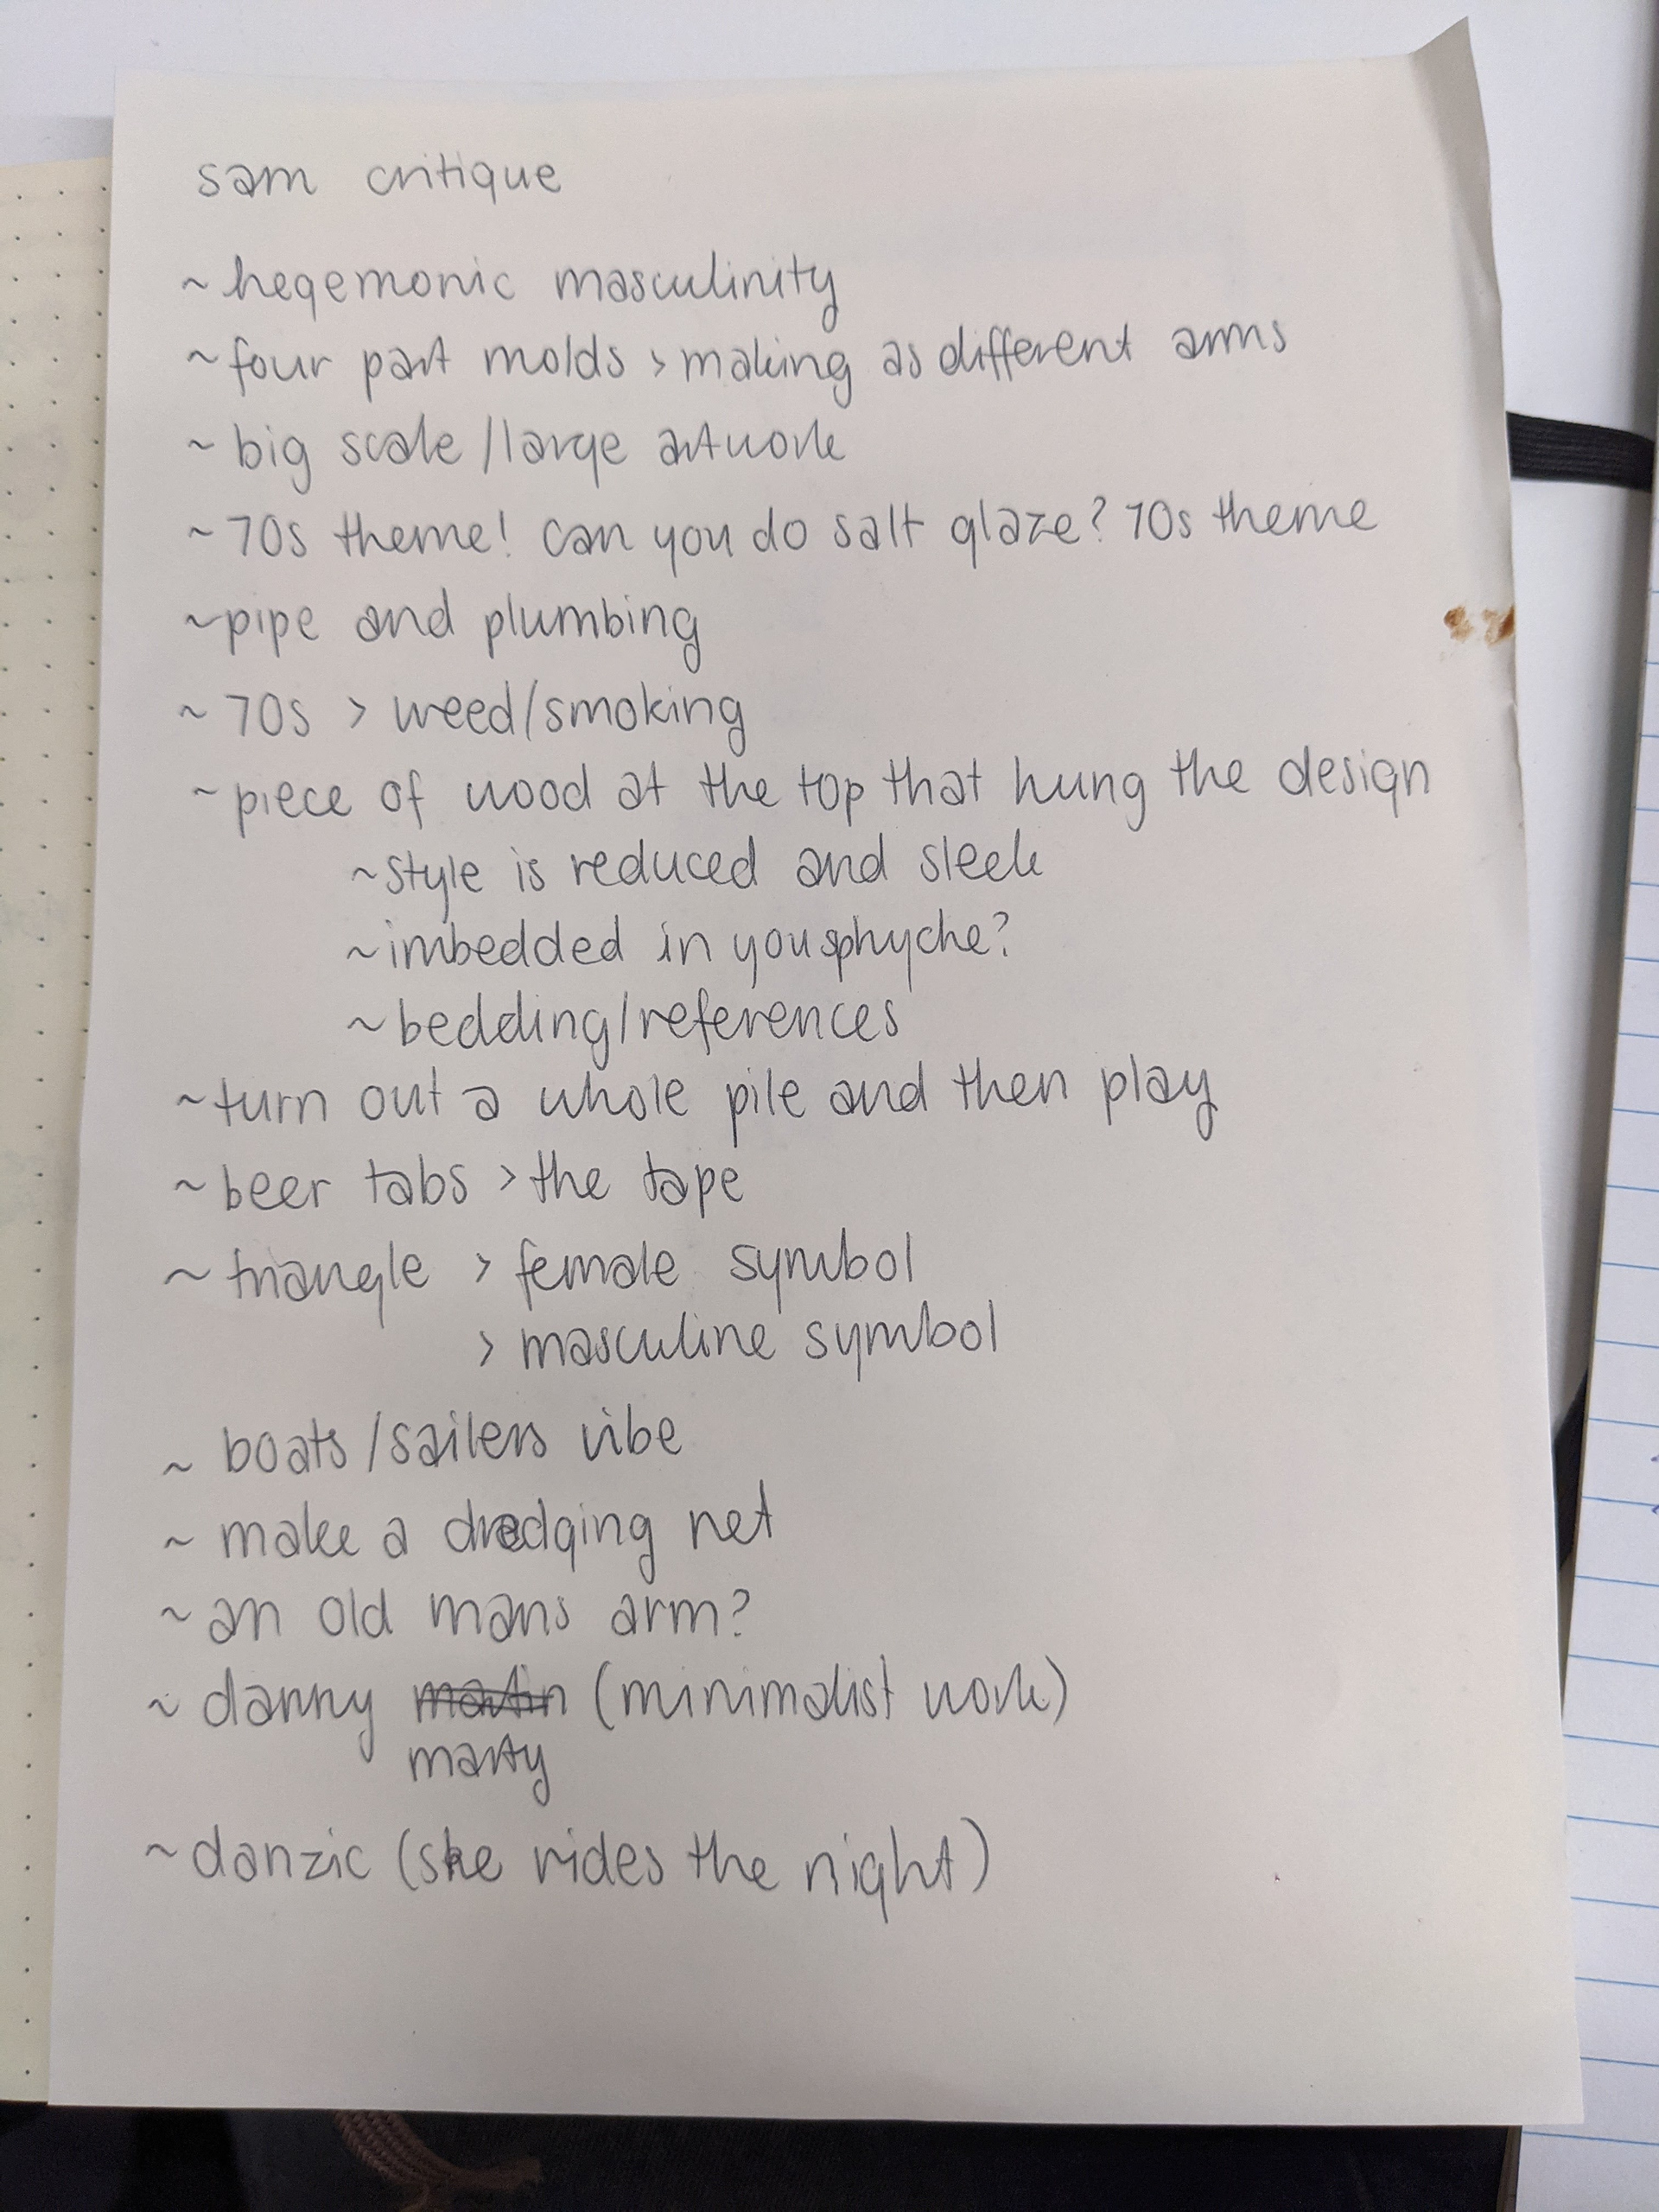 sam critique
~ hegemonic masculinity
~ four part molds > making as different arms
~ big scale/large artwork
~ 70s theme! can you do salt glaze? 70s theme
~ pipe and plumbing
~ 70s > weed/smoking
~ piece of wood at the top that hung the design
~ style is reduced and sleek
~ imbedded in your sphyche?
~ bedding/references
~ turn out a whole pile and then play
~ beer tabs > the tape
~ triangle > female symbol
> masculine symbol
~ boats/sailers vibe
~ make a dredging net
~ an old mans arm?
~ danny martin (minimalist work)
marty
~ danzic (she rides the night)